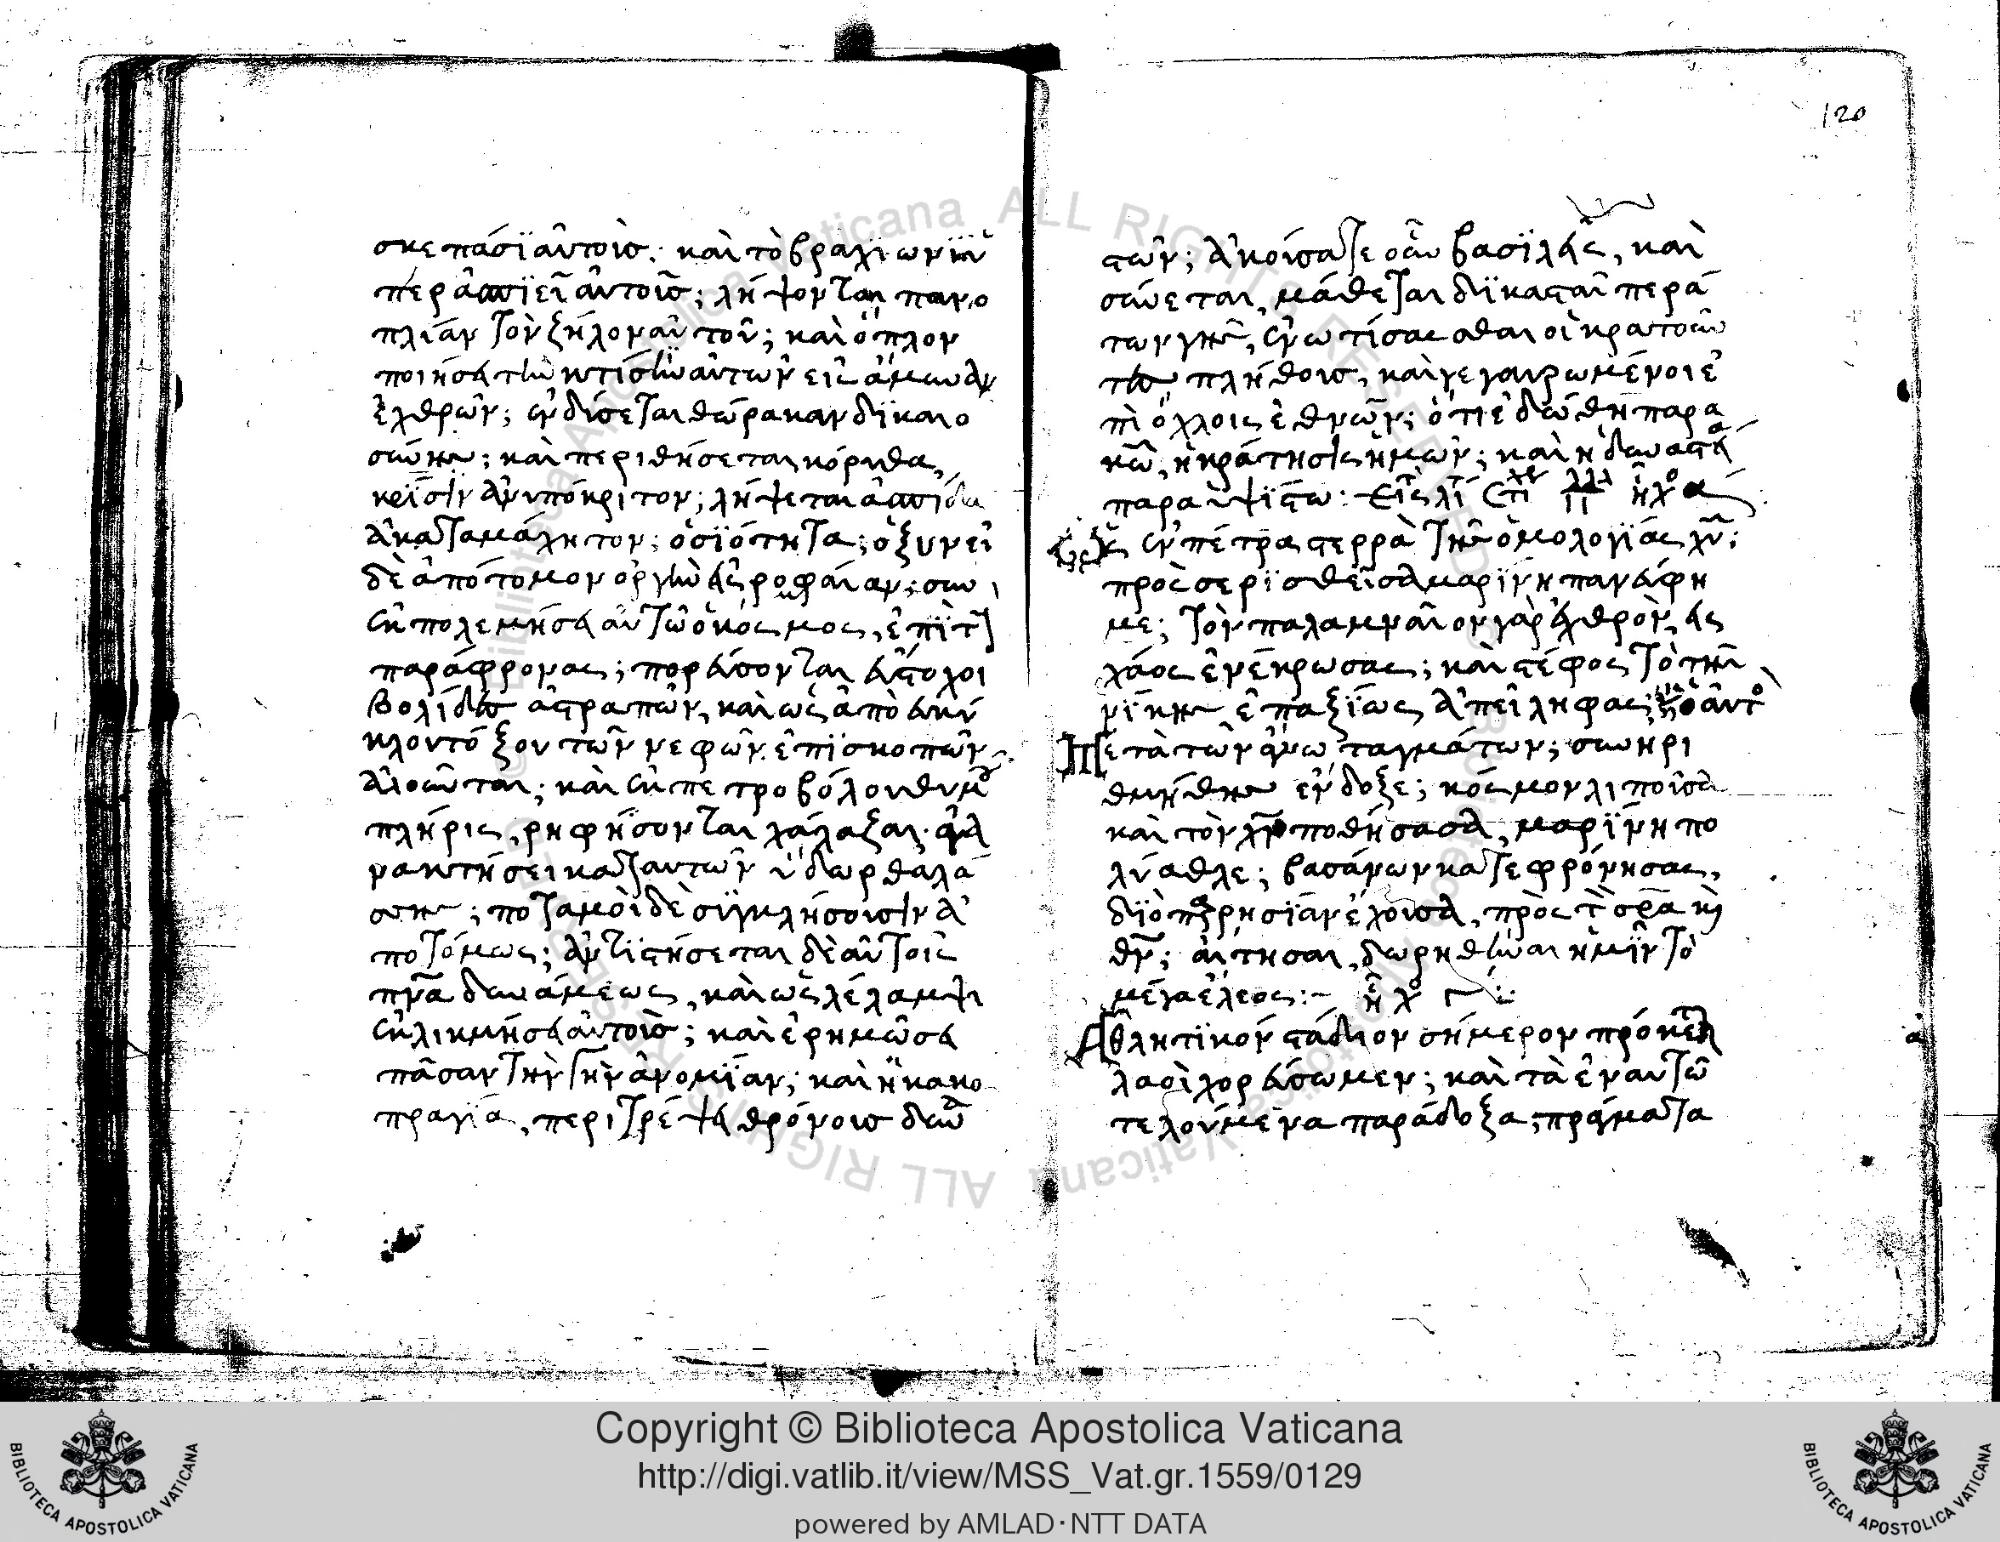 σκεπάσϊ αὐτοὶσ· καὶ τὸ βραχΐωνϊ ὑ
περασπϊεῖ αὐτοῖσ; λήψονται πανο
πλιάν τὸν ξήλον αὐτοῦ; καὶ ὅπλον
ποιήσει τὴν κτίσϊν αὐτῶν εἰς ἄμυναν
ἐχθρῶν; ἐνδύσεται θώρακαν δϊκαιο
σύνην; καὶ περιθήσεται κόρυθα,
κρίσιν ἀνυπόκριτον; λήψεται ἀσπίδα
ἀκαταμάχητον; ὁσϊότητα; ὀξυνεῖ
δὲ ἀπότομον ὀργὴν εἰς ροφαίαν; συν
ἐκπολεμήσει αὐτῶ ὁ κόσμος, ἐπῒ τ
παράφρονας; πορεύσονται εὔστοχοι
βολίδεσ ἀστραπῶν, καὶ ὡς ἀπὸ εὐκύ
κλου τόξου τῶν νεφῶν ἐπϊσκοπῶν
ἁλοῦνται; καὶ ἐκ πετροβόλου θυμοῦ
πλήρις, ρηφήσονται χάλαξαι· ἀγα
νακτήσει κατ αυτῶν ὕδωρ θαλά
σσησ; ποταμοὶ δὲ σϊγκλήσουσϊν ἀ
ποτόμως; ἀντϊστήσεται δὲ αὐτοῖς
πνα δυνάμεως, καὶ ὡς λέλαμψι
ἐκλικμήσει αὐτοὺσ; καὶ ἐρημῶσει
πᾶσαν τὴν γὴν ἀνομϊάν; καὶ ἡ κακο
πραγϊά, περιτρέψει θρόνοισ δυνα
στῶν; ἀκούσατε οὖν βασϊλεῖς, καὶ
σύνεται, μάθεται δϊκασταὶ περά
των γῆσ, ἐνωτίσασθαι οἱ κρατοῦν
τεσ πλήθοισ, καὶ γεγαυρωμένοι ἐ
πὶ ὄχλοις ἐθνῶν; ὅτι ἐδώθη παρὰ
κυ, ἡ κράτησϊς ἡμῶν; καὶ ἡ δυναστεία
παρὰ ὑψϊστω: Εἰς λϊ στι ἦχος α
ἐν πέτρα στερρὰ τῆσ ὁμολογϊάς χυ;
προσερϊσθεῖσα μαρϊνη πανεύφη
με; τὸν παλαμναῖον γὰρ ἐχθρὸν, εἰς
χάος ἐνέκρωσας; καὶ στέφος τὸ τῆσ
νϊκησ ἐπαξϊως ἀπεῖληφας;
Μετὰ τῶν ἄνω ταγμάτων; συνηρι
θμήθησ ἐνδοξε; κόσμον λιποῦσα
καὶ τὸν χν ποθήσασα, μαρϊνη πο
λύαθλε; βασάνων κατεφρόνησας,
δϊὸ παρρησϊαν ἐχουσα, πρὸς τ σρα κὶ
θν; αἴτησαι, δωρηθῆναι ἡμῖν τὸ
μέγα ἐλεος:~ ἦχ
Ἀθλητϊκὸν στάδιον σήμερον πρόκειται
λαοὶ χορεύσωμεν; καὶ τὰ ἐν αυτῶ
τελούμενα παράδοξα, πράγματα
120
Copyright © Biblioteca Apostolica Vaticana
http://digi.vatlib.it/view/MSS_Vat.gr.1559/0129
powered by AMLAD·NTT DATA